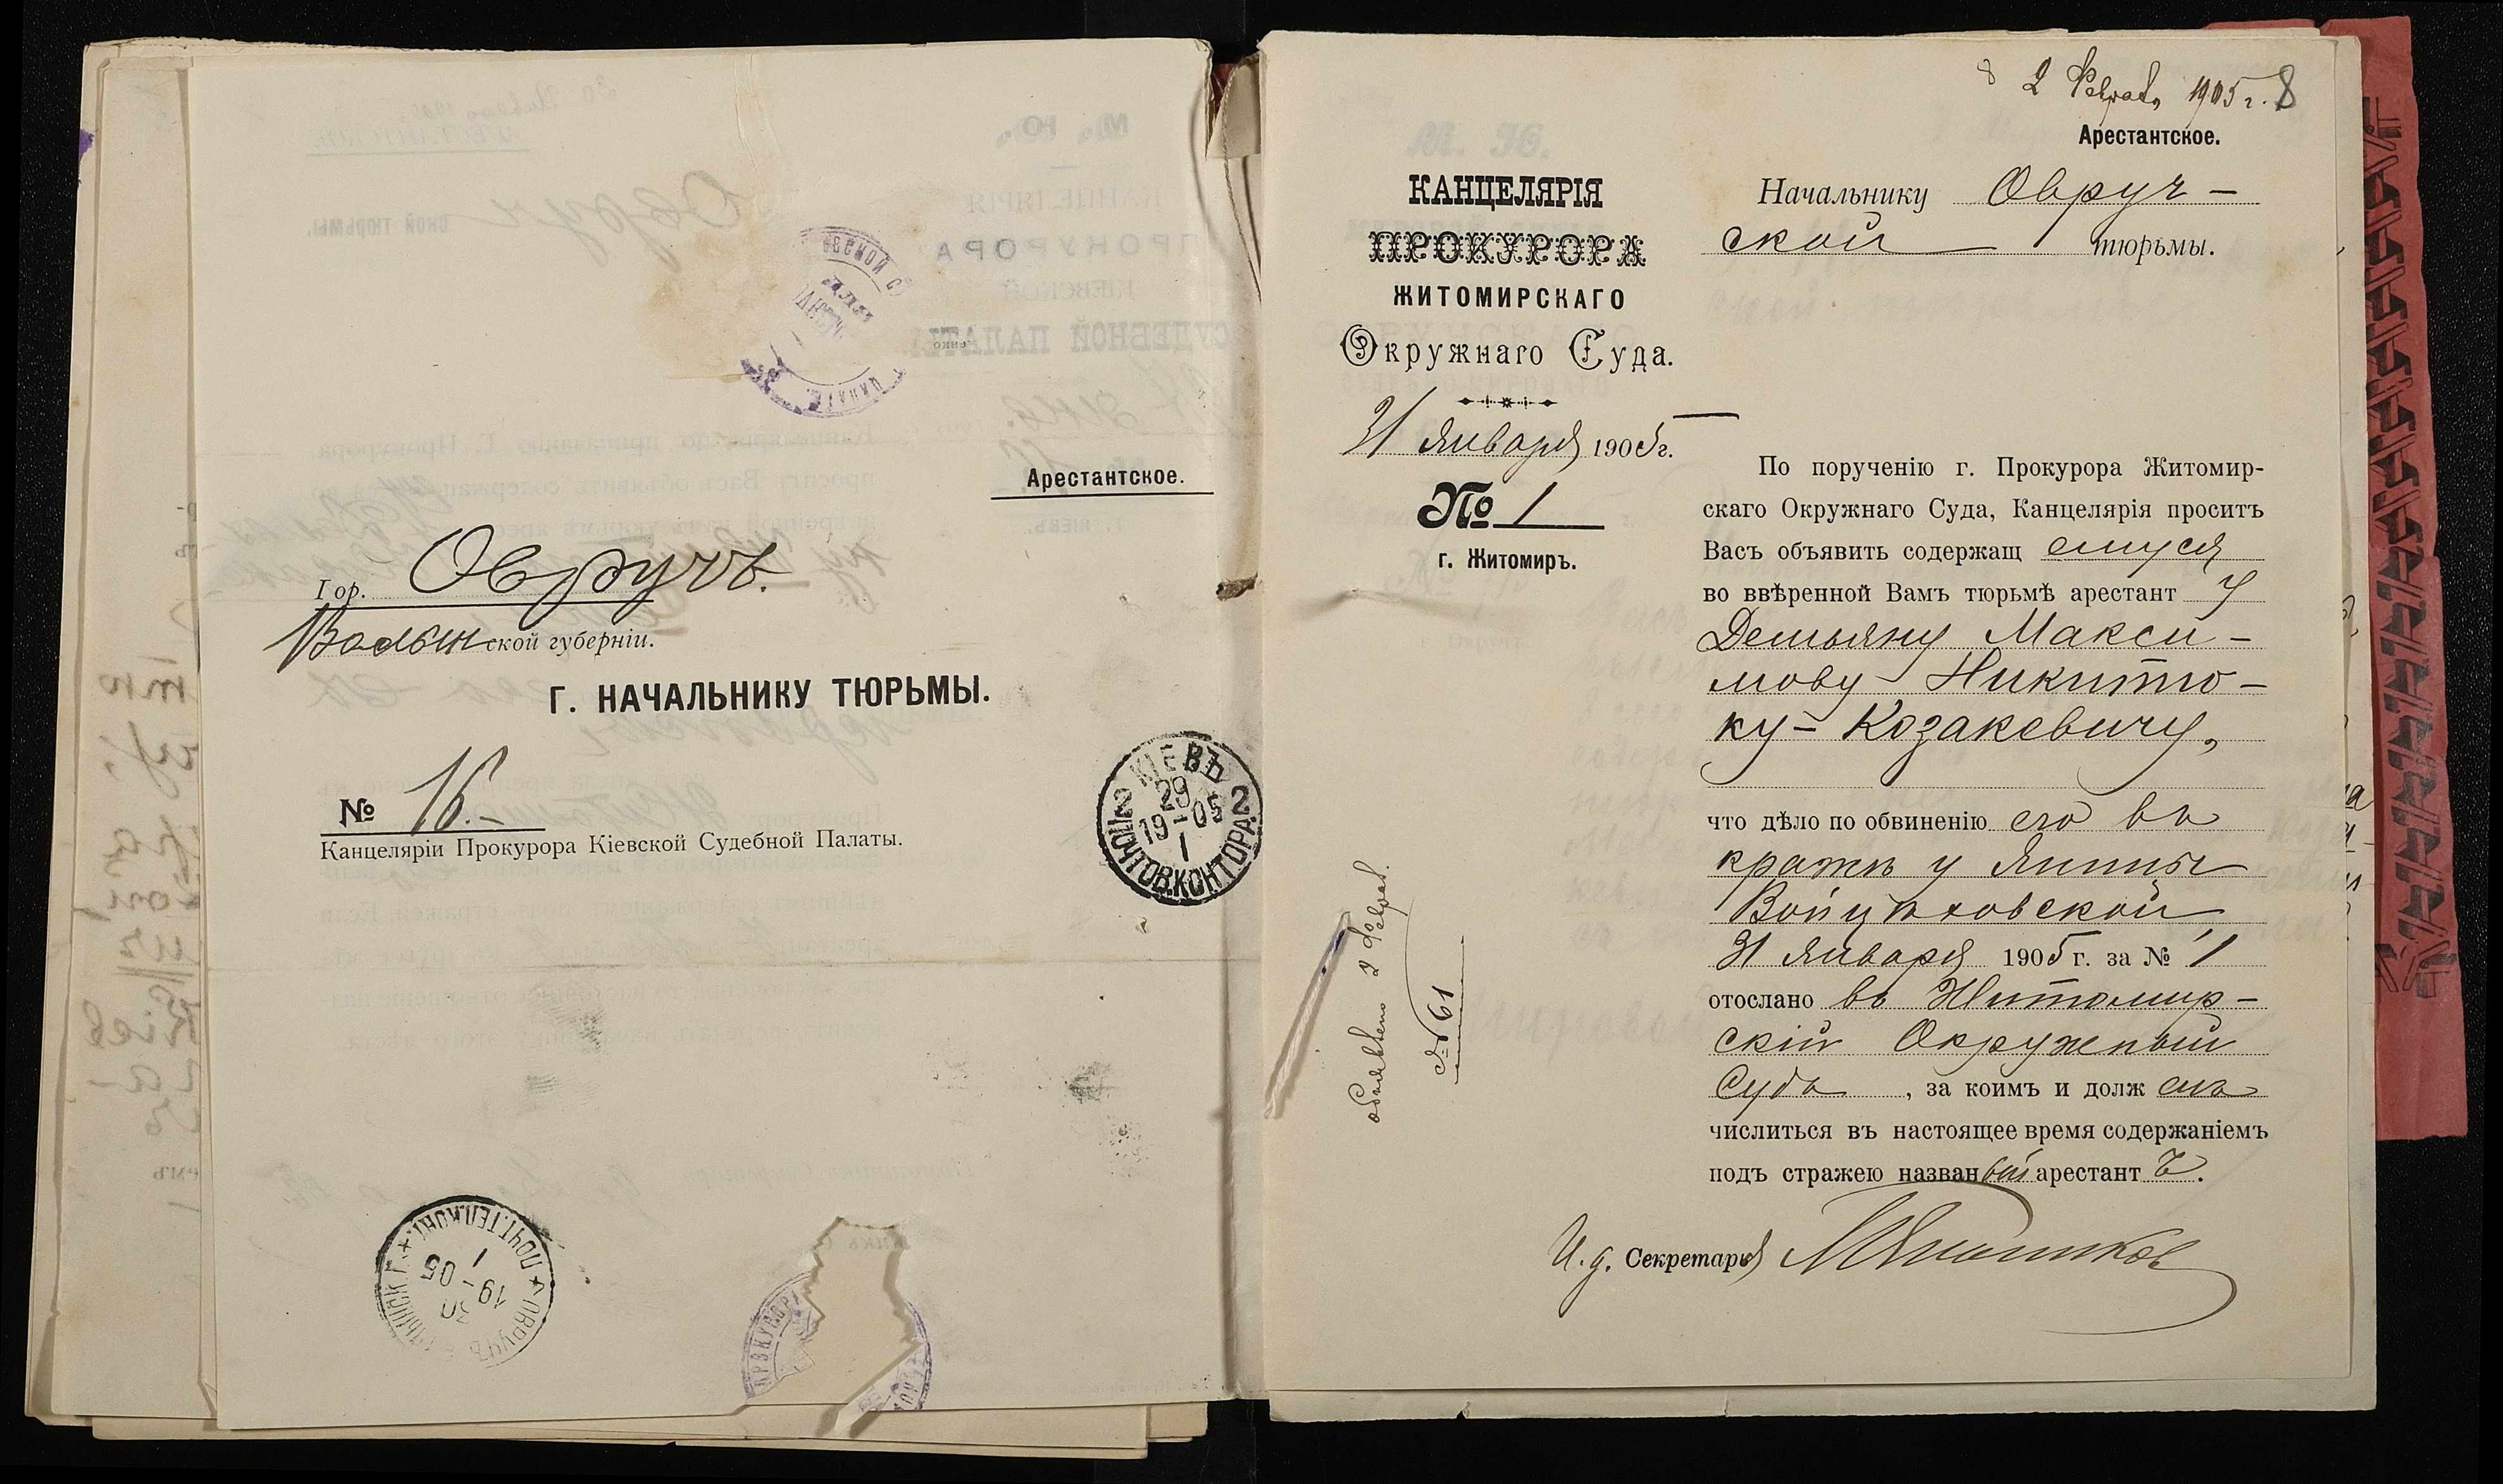 Арестантское.
Гор. Овручъ.
Волынской губерніи.
Г. НАЧАЛЬНИКУ ТЮРЬМЫ.
№ 16.-
Канцеляріи Прокурора Кіевской Судебной Палаты.
КІЕВЪ
2 29 2
19-05
1
ПОЧТОВ.КОНТОРА.
ОВРУЧЪ
30
19-05
1
ПОЧТ.ТЕЛ.КОНТ.
8 2 Февраля 1905 г. 8
Арестантское.
КАНЦЕЛЯРІЯ
ПРОКУРОРА
ЖИТОМИРСКАГО
Окружнаго Суда.
31 Января 1905 г.
№ 1
г. Житомиръ.
Начальнику Овруч-
ской тюрьмы.
По порученію г. Прокурора Житомир-
скаго Окружнаго Суда, Канцелярія проситъ
Васъ объявить содержащемуся
во ввѣренной Вамъ тюрьмѣ арестанту
Демьяну Макси-
мову Никитю-
ку-Козакевичу,
что дѣло по обвиненію его въ
кражѣ у Янины
Войцѣховской
31 Января 1905 г. за № 1
отослано въ Житомир-
скій Окружный
Судъ, за коимъ и долженъ
числиться въ настоящее время содержаніемъ
подъ стражею названый арестантъ.
И. д. Секретаря
объявлено 2 Феврал.
№ 61